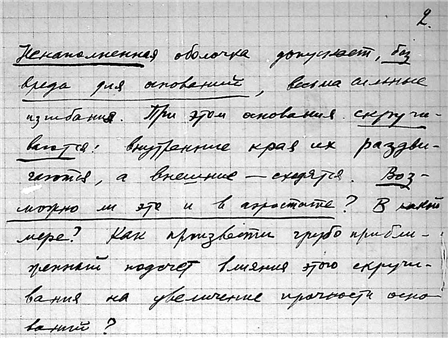 2.
Ненаполненная оболочка допускает, без
вреда для оснований, весьма сильные
изгибания. При этом основания скручи-
ваются: внутренние края их раздви-
гаются, а внешние — сходятся. Воз-
можно ли это и в аэростате? В какой
мере? Как произвести грубо прибли-
женный подсчет влияния этого скручи-
вания на увеличение прочности осно-
ваний?